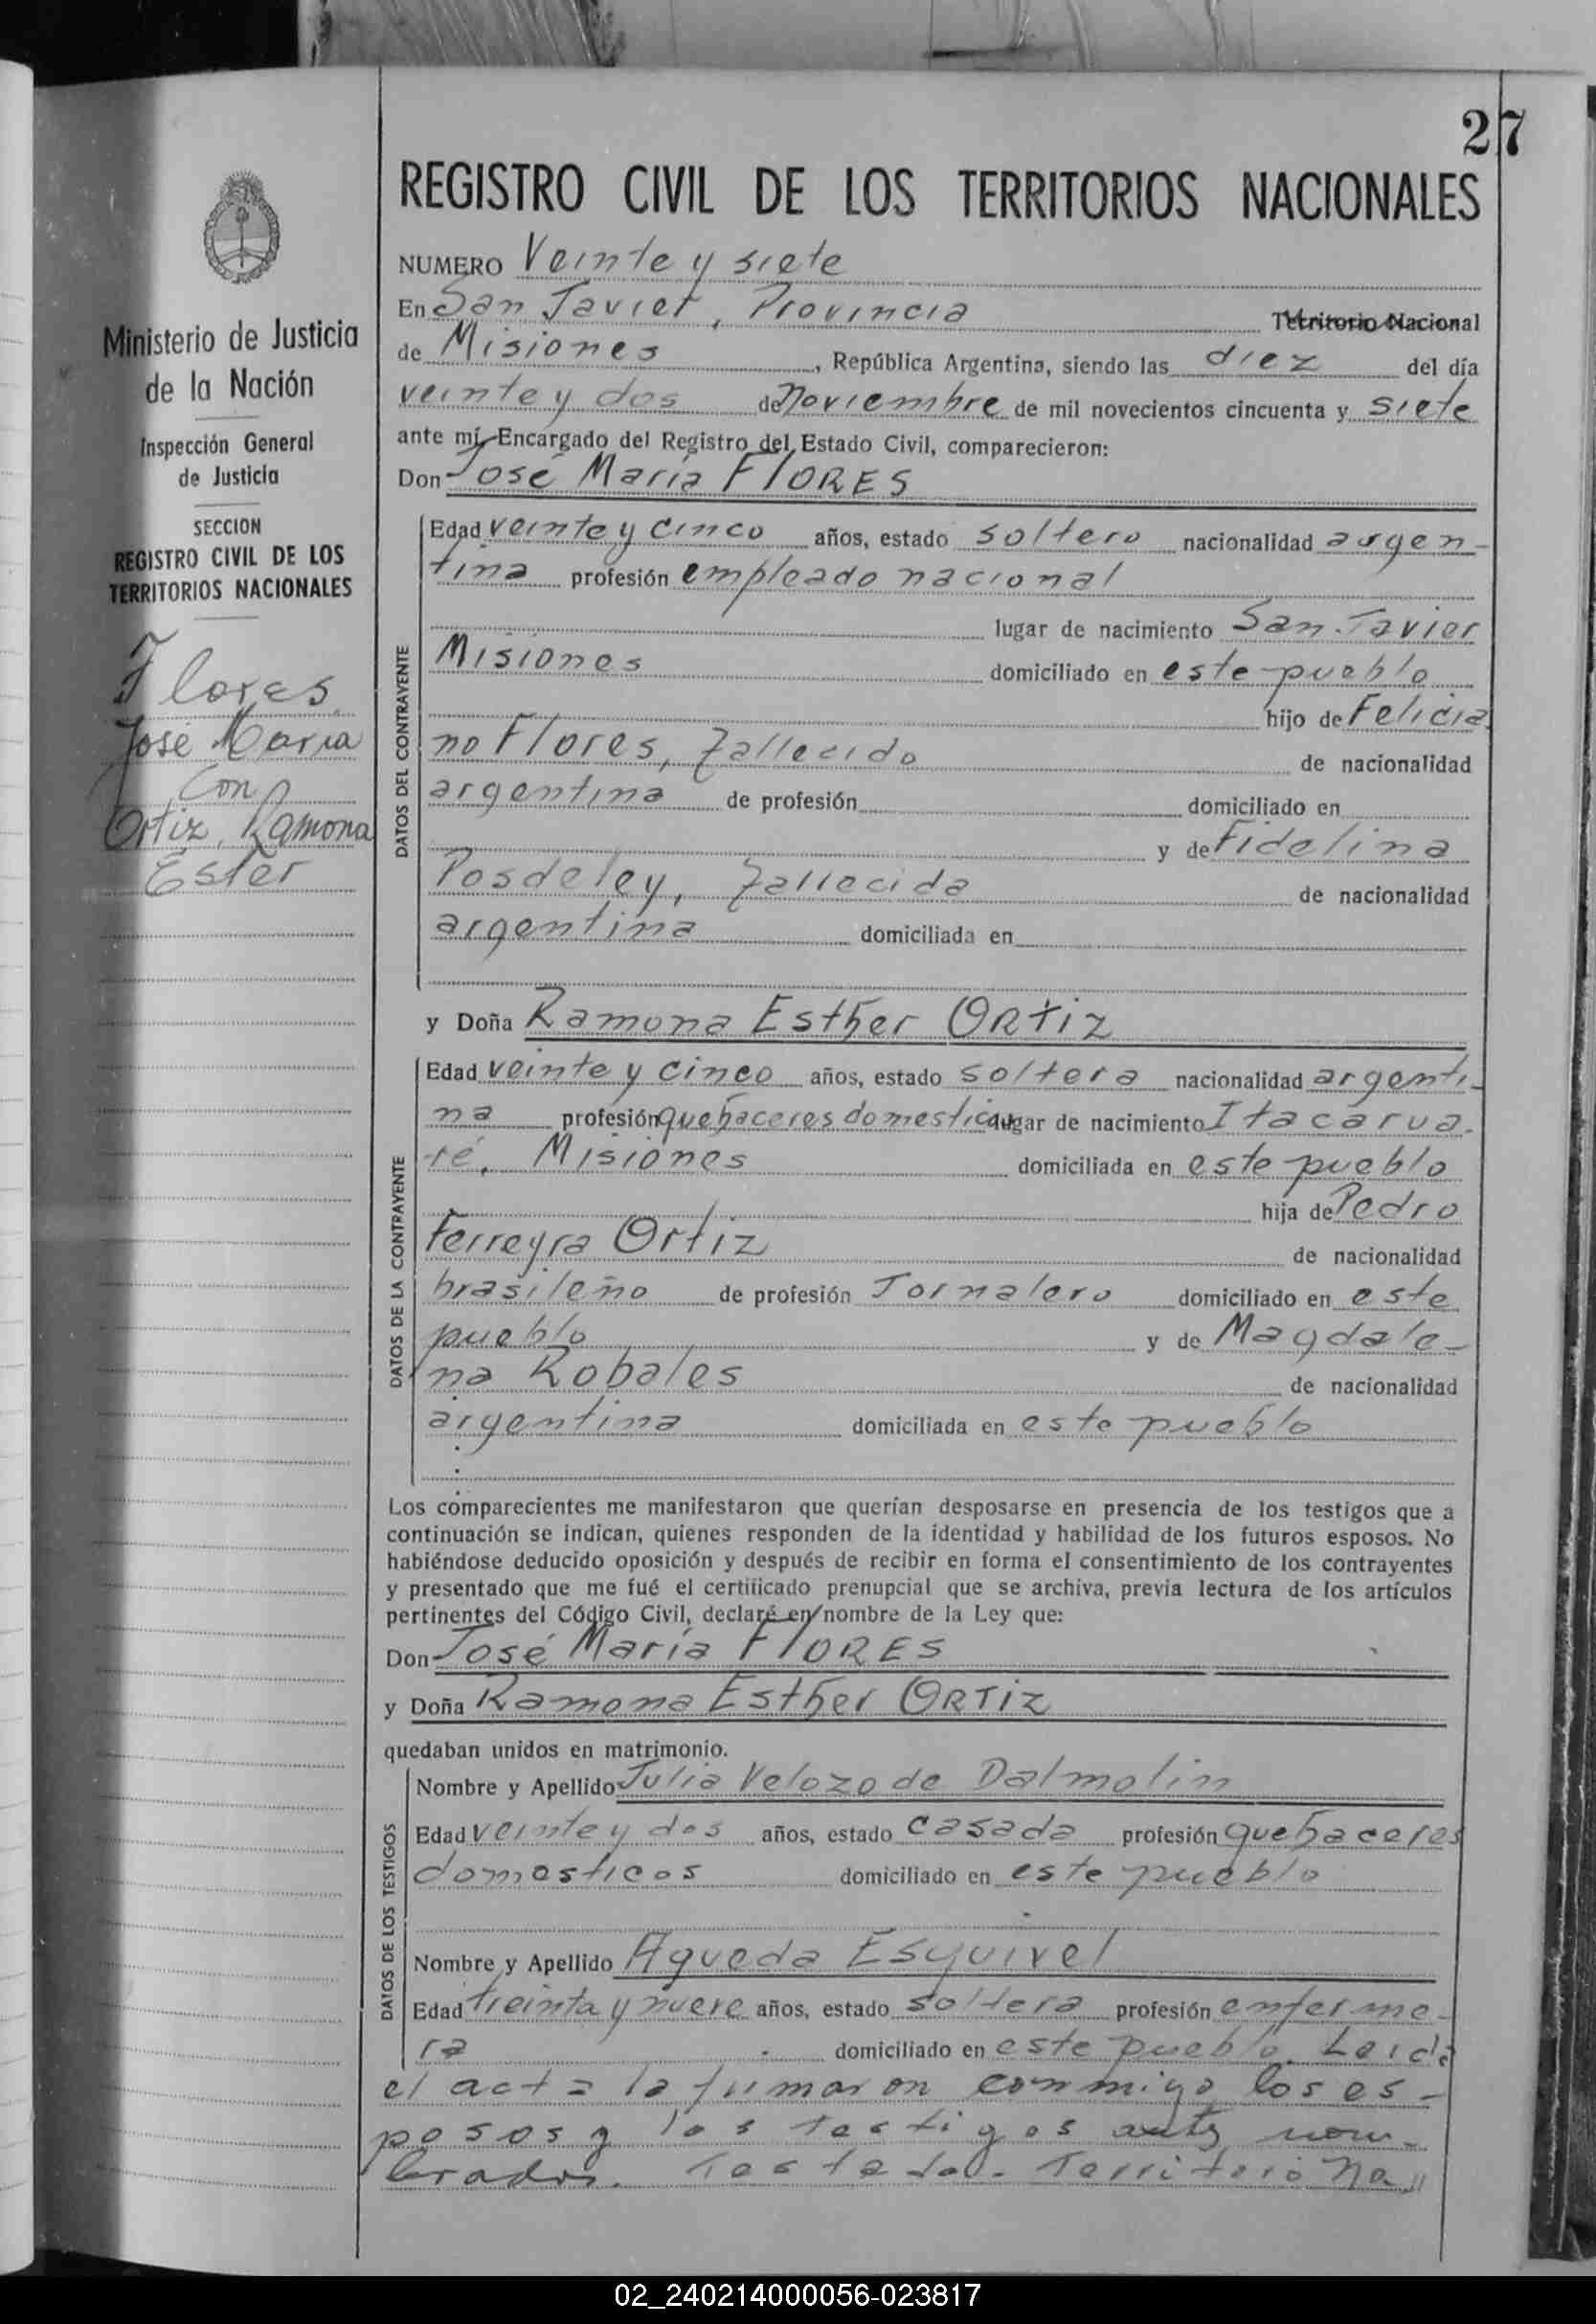 27
REGISTRO CIVIL DE LOS TERRITORIOS NACIONALES
NUMERO Veinte y siete
En San Javier, Provincia Territorio Nacional
de Misiones, República Argentina, siendo las diez del día
veinte y dos de noviembre de mil novecientos cincuenta y siete
ante mí, Encargado del Registro del Estado Civil, comparecieron:
Don José María FlORES
DATOS DEL CONTRAYENTE
Edad veinte y cinco años, estado soltero nacionalidad argen-
tina profesión empleado nacional
lugar de nacimiento San Javier
Misiones domiciliado en este pueblo
hijo de Felicia
no Flores, fallecido de nacionalidad
argentina de profesión domiciliado en
y de Fidelina
Posdeley, fallecida de nacionalidad
argentina domiciliada en
y Doña Ramona Esther ORTiz
DATOS DE LA CONTRAYENTE
Edad veinte y cinco años, estado soltera nacionalidad argenti-
na profesión quehaceres domesticos lugar de nacimiento Itacarua-
ré, Misiones domiciliada en este pueblo
hija de Pedro
Ferreyra Ortiz de nacionalidad
brasileño de profesión Jornalero domiciliado en este
pueblo y de Magdale-
na Robales de nacionalidad
argentina domiciliada en este pueblo
Los comparecientes me manifestaron que querían desposarse en presencia de los testigos que a
continuación se indican, quienes responden de la identidad y habilidad de los futuros esposos. No
habiéndose deducido oposición y después de recibir en forma el consentimiento de los contrayentes
y presentado que me fué el certificado prenupcial que se archiva, previa lectura de los artículos
pertinentes del Código Civil, declaré en nombre de la Ley que:
Don José María FlORES
y Doña Ramona Esther ORTiz
quedaban unidos en matrimonio.
DATOS DE LOS TESTIGOS
Nombre y Apellido Julia Velozo de Dalmolin
Edad veinte y dos años, estado casada profesión quehaceres
domesticos domiciliado en este pueblo
Nombre y Apellido Agueda Esquivel
Edad treinta y nueve años, estado soltera profesión enferme-
ra domiciliado en este pueblo. Leida
el acta la firmaron conmigo los es-
posos y los testigos antes nom-
brados. Testado. Territorio Na"
Ministerio de Justicia
de la Nación
Inspección General
de Justicia
SECCION
REGISTRO CIVIL DE LOS
TERRITORIOS NACIONALES
Flores
José Maria
Con
Ortiz, Ramona
Ester
02_240214000056-023817